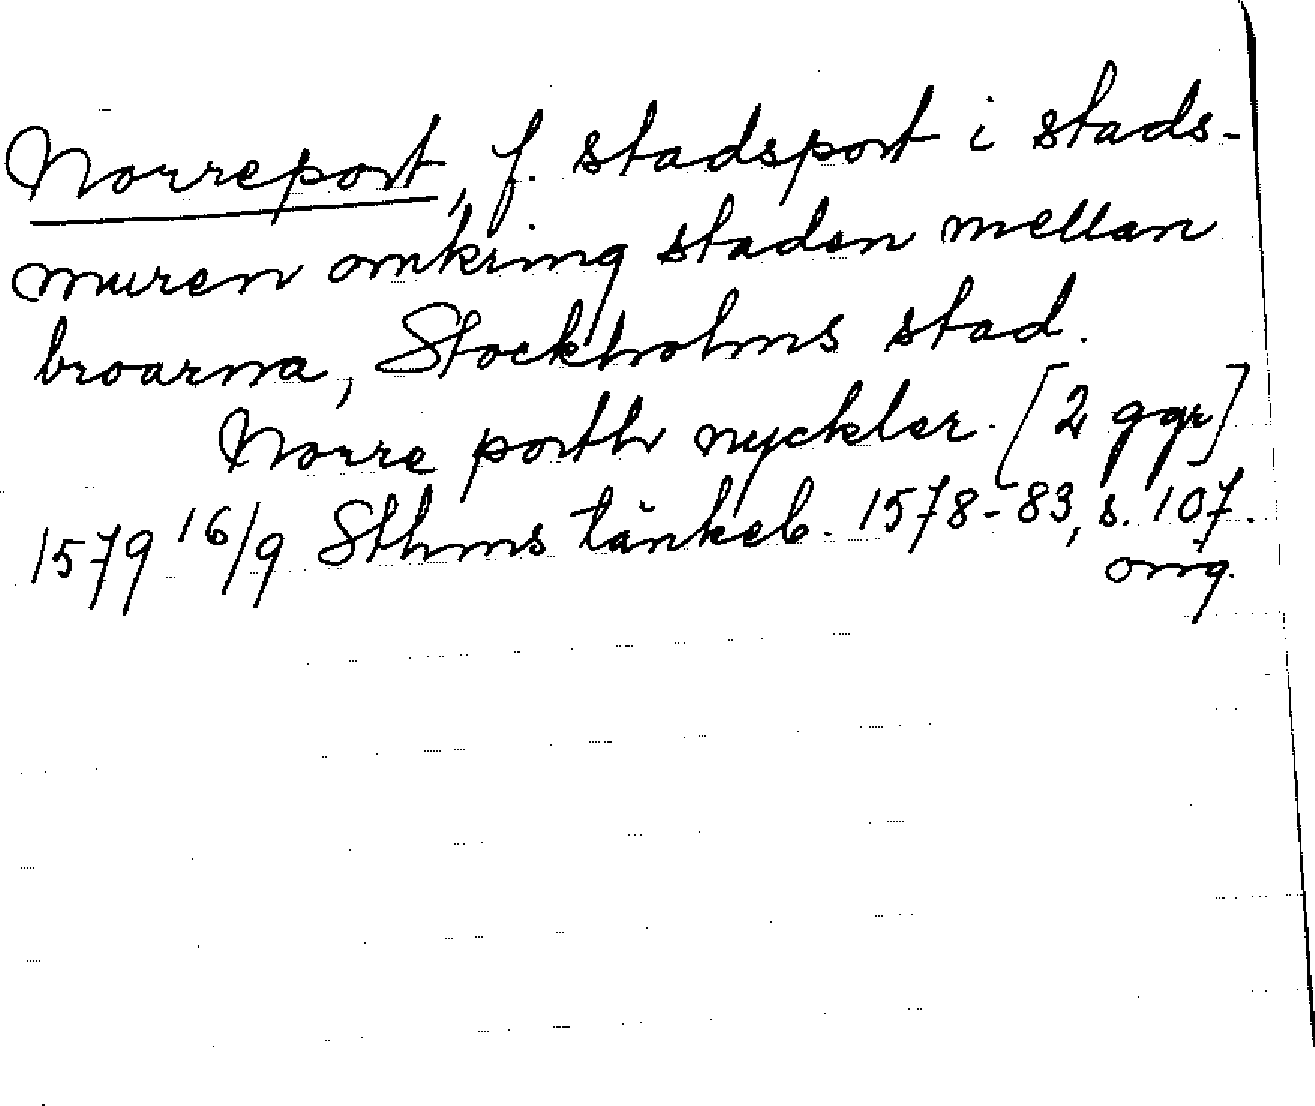 Norreport, f. stadsport i stads-
muren omkring staden mellan
broarna, Stockholms stad.
Norre porth nyckler. [2 ggr]
1579 16/9 Sthms tänkeb. 1578-83, s. 107.
orig.